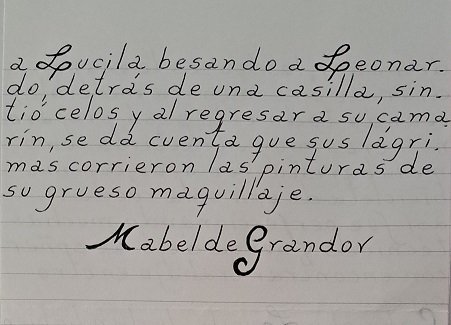 a Lucila besando a Leonar.
do, detrás de una casilla, sin.
tió celos y al regresar a su cama.
rín, se da cuenta que sus lágri.
mas corrieron las pinturas de
su grueso maquillaje.
Mabel de Grandov